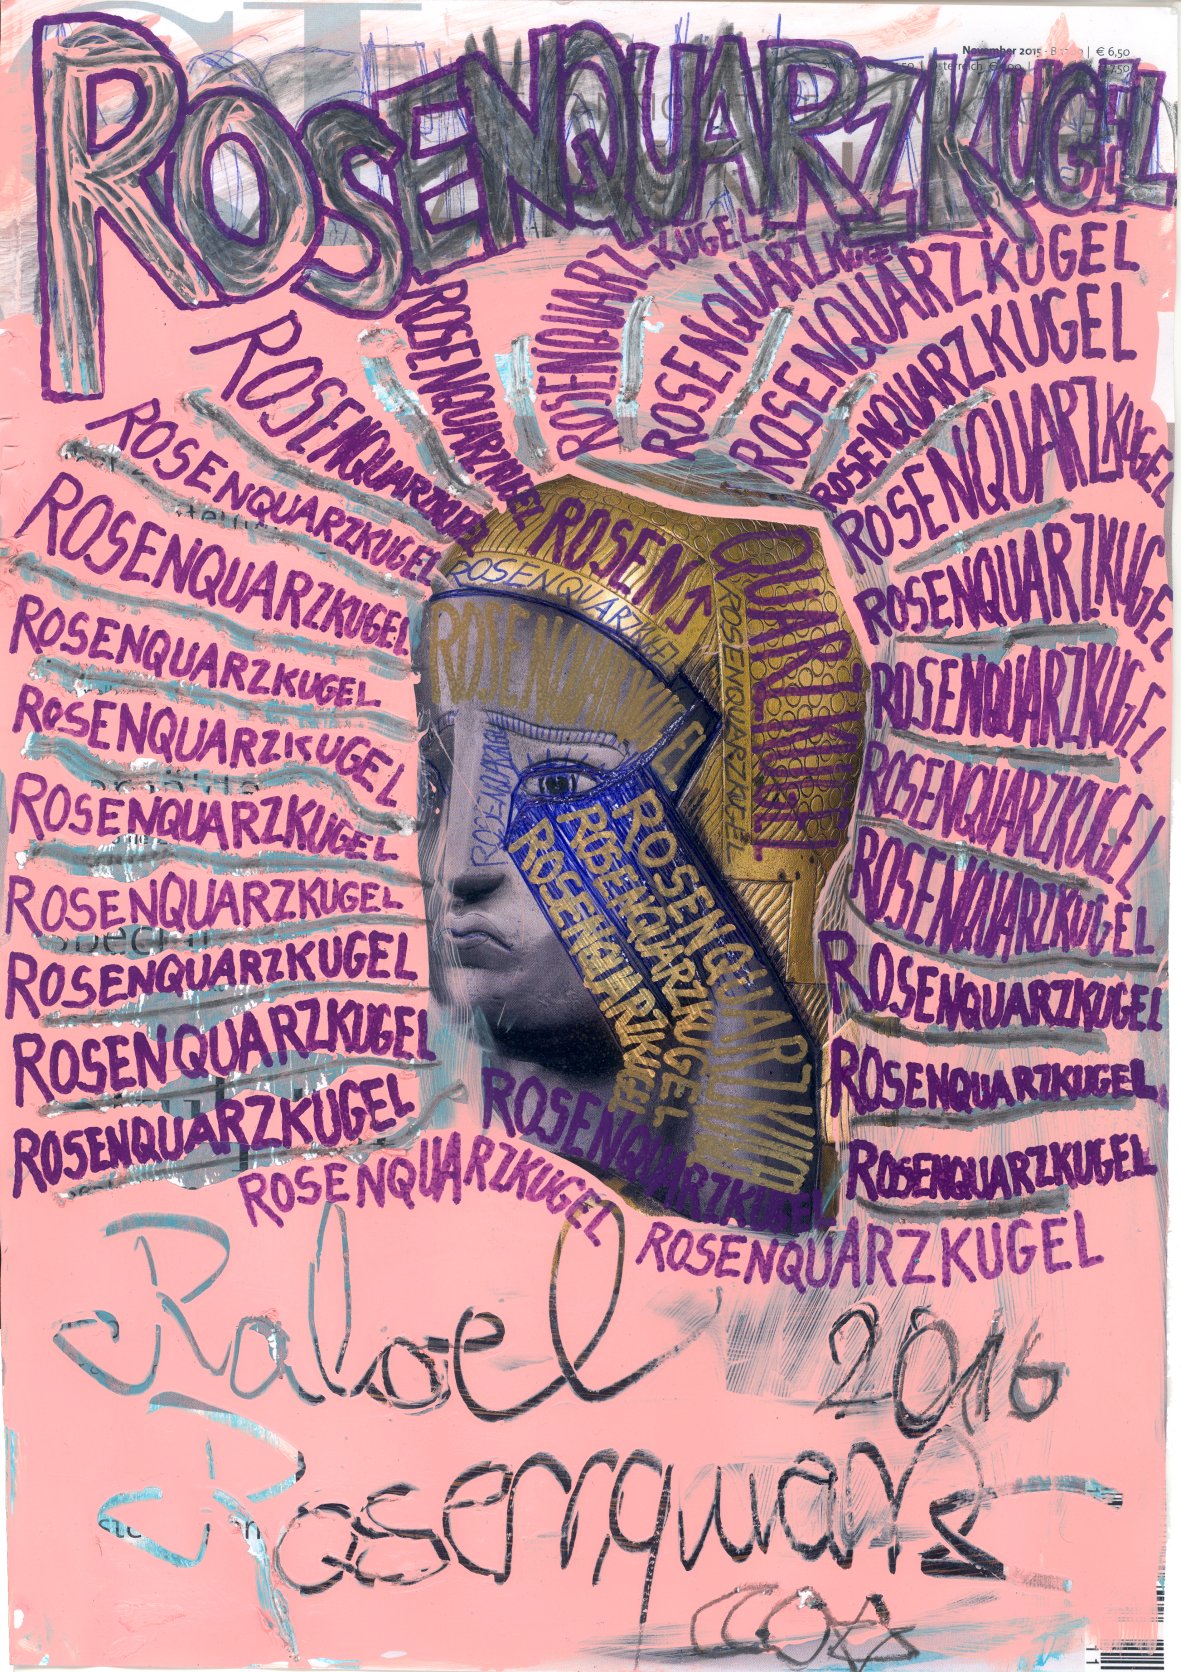 November 2015
€ 6,50
ROSENQUARZKUGEL
ROSENQUARZKUGEL
ROSENQUARZKUGEL
ROSENQUARZKUGEL
ROSENQUARZKUGEL
ROSENQUARZKUGEL
ROSENQUARZKUGEL
ROSENQUARZKUGEL
ROSENQUARZKUGEL
ROSENQUARZKUGEL
ROSENQUARZKUGEL
ROSENQUARZKUGEL
ROSENQUARZKUGEL
ROSENQUARZKUGEL
ROSENQUARZKUGEL
ROSENQUARZKUGEL
ROSENQUARZKUGEL
ROSEN
QUARZKUGEL
ROSENQUARZKUGEL
ROSENQUARZKUGEL
ROSENQUARZKUGEL
ROSENQUARZKUGEL
ROSENQUARZKUGEL
ROSENQUARZKUGEL
ROSENQUARZKUGEL
ROSENQUARZKUGEL
ROSENQUARZKUGEL
ROSENQUARZKUGEL
ROSENQUARZKUGEL
ROSENQUARZKUGEL
ROSENQUARZKUGEL
ROSENQUARZKUGEL
ROSENQUARZKUGEL
ROSENQUARZKUGEL
ROSENQUARZKUGEL
ROSENQUARZKUGEL
ROSENQUARZKUGEL
2016
Rosenquarz
11